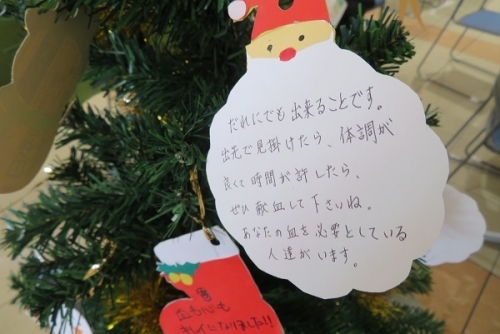 だれにでも出来ることです。
出先で見掛けたら、体調が
良くて時間が許したら、
ぜひ献血して下さいね。
あなたの血を必要としている
人達がいます。
血も心も
きれいになりました!!